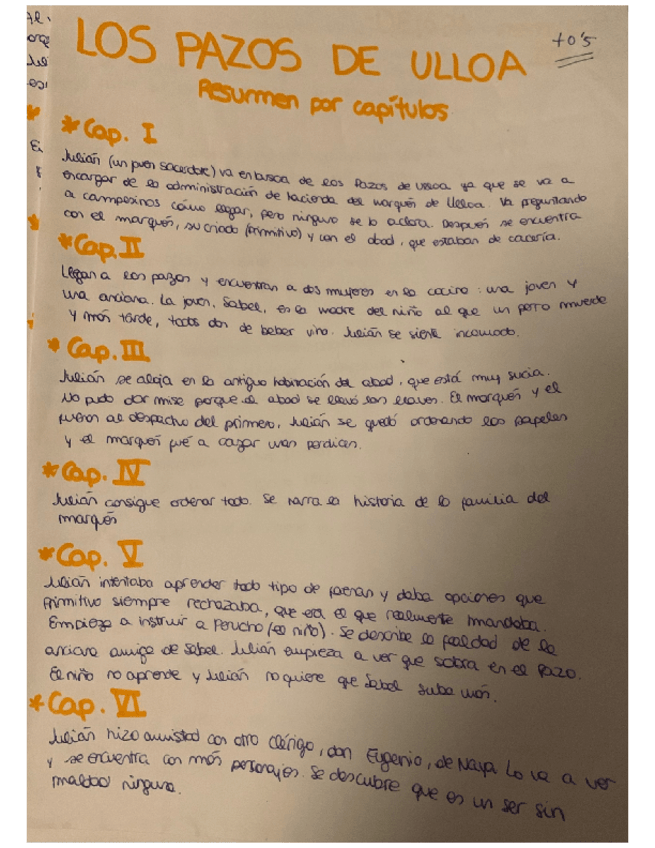 LOS PAZOS DE ULLOA
+0'5
Resumen por capítulos
*Cap. I
Julián (un buen sacerdote) va en busca de los Pazos de Ulloa ya que se va a
encargar de la administración de hacienda del marqués de Ulloa. Va preguntando
a campesinos cómo llegar, pero ninguno se lo aclara. Después se encuentra
con el marqués, su criado (Primitivo) y con el abad, que estaban de cacería.
*Cap. II
Llegan a los pazos y encuentran a dos mujeres en la cocina: una joven y
una anciana. La joven, Sabel, es la madre del niño al que un perro muerde
y más tarde, todos dan de beber vino. Julián se siente incomodo.
*Cap. III
Julián se aloja en la antigua habitación del abad, que está muy sucia.
No pudo dar misa porque el abad se llevó las llaves. El marqués y él
fueron al despacho del primero, Julián se quedó ordenando los papeles
y el marqués fué a cazar unas perdices.
*Cap. IV
Julián consigue ordenar todo. Se narra la historia de la familia del
marqués
*Cap. V
Julián intentaba aprender todo tipo de faenas y daba opciones que
Primitivo siempre rechazaba, que era el que realmente mandaba.
Empieza a instruir a Perucho (el niño). Se describe la fealdad de la
anciana amiga de Sabel. Julián empieza a ver que sobra en el Pazo.
El niño no aprende y Julián no quiere que Sabel suba más.
*Cap. VI
Julián hizo amistad con otro clérigo, don Eugenio, de Naya. Lo va a ver
y se encuentra con más personajes. Se descubre que es un ser sin
maldad ninguna.